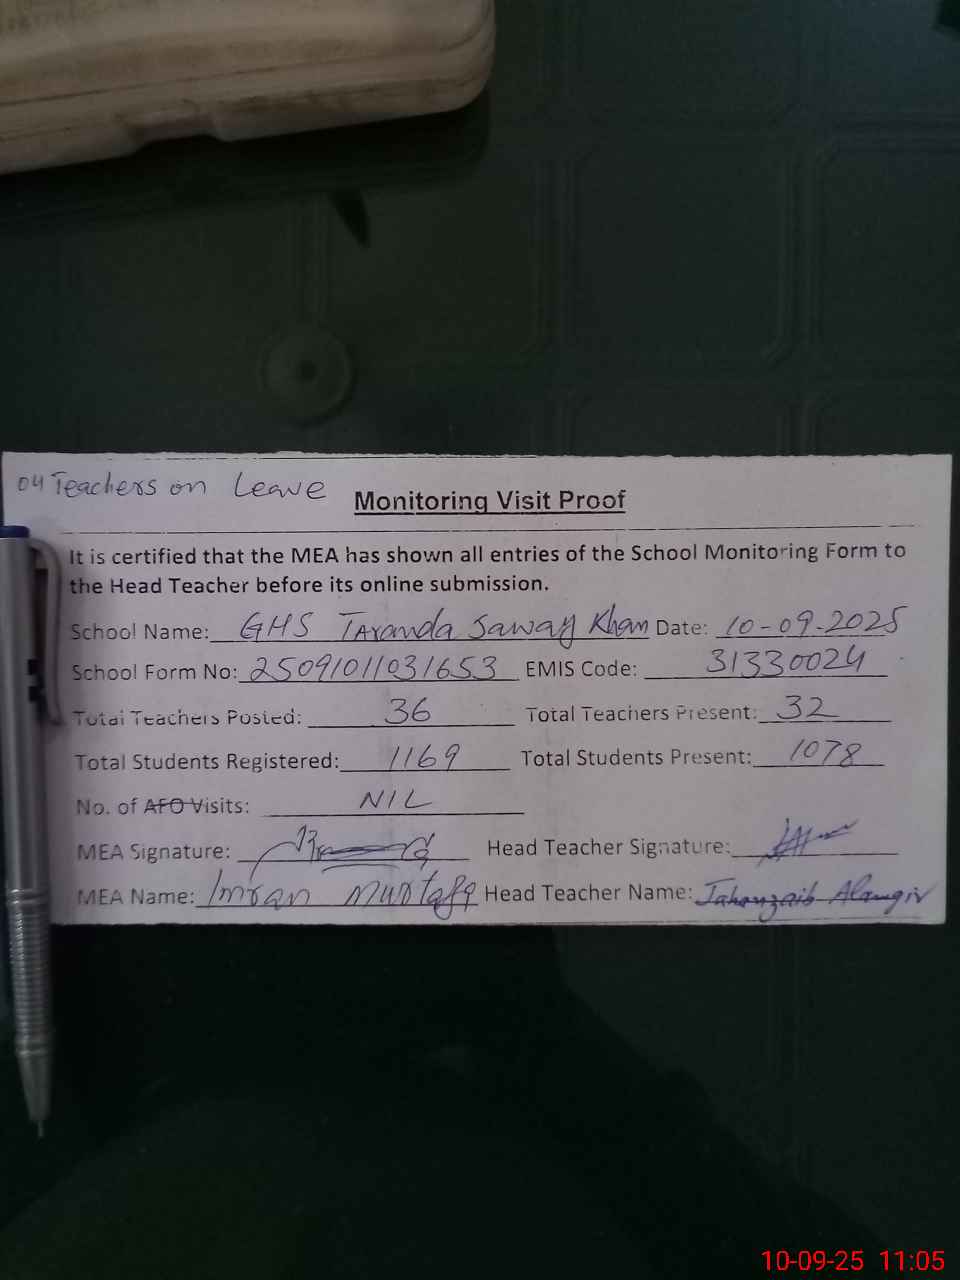 04 Teachers on Leave
Monitoring Visit Proof
It is certified that the MEA has shown all entries of the School Monitoring Form to
the Head Teacher before its online submission.
School Name: GHS Taranda Saway Khan Date: 10-09-2025
School Form No: 25091011031653 EMIS Code: 31330024
Total Teachers Posted: 36 Total Teachers Present: 32
Total Students Registered: 1169 Total Students Present: 1078
No. of AFO Visits: NIL
MEA Signature: Head Teacher Signature:
MEA Name: Imran Murtafa Head Teacher Name: Jahanzaib Alamgir
10-09-25 11:05